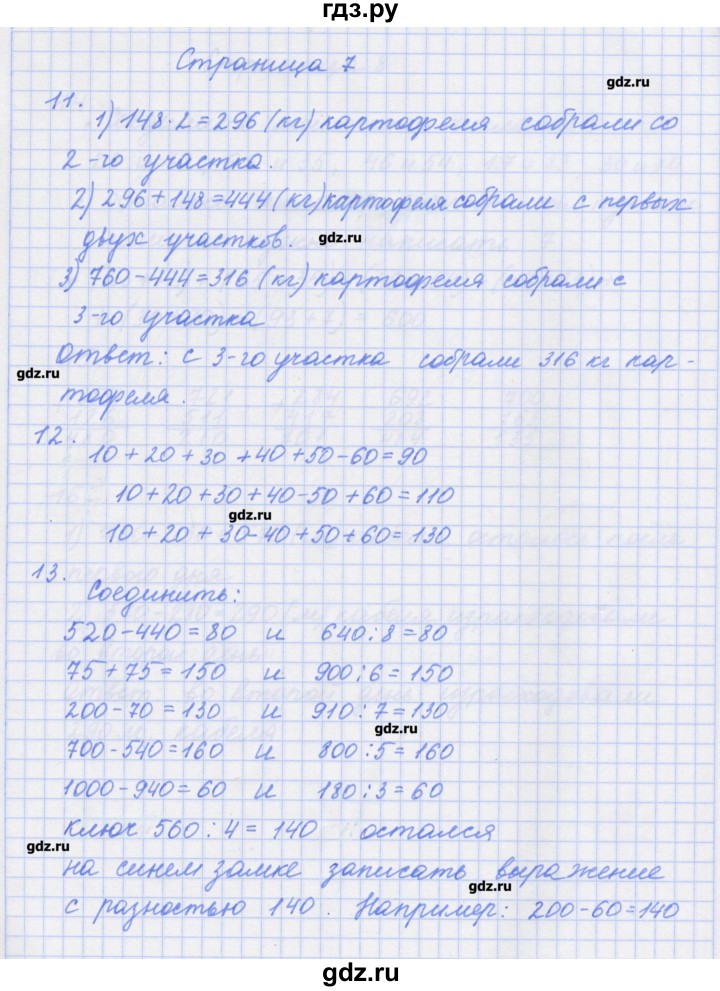 гдз.ру
Страница 7
gdz.ru
11.
1) 148·2=296 (кг) картофеля собрали со
2-го участка.
2) 296+148=444 (кг) картофеля собрали с первых
двух участков.
gdz.ru
3) 760-444=316 (кг) картофеля собрали с
3-го участка
Ответ: с 3-го участка собрали 316 кг кар-
gdz.ru
тофеля.
12.
10+20+30+40+50-60=90
10+20+30+40-50+60=110
gdz.ru
10+20+30-40+50+60=130
13.
Соединить:
520-440=80 и 640:8=80
75+75=150 и 900:6=150
200-70=130 и 910:7=130
gdz.ru
700-540=160 и 800:5=160
1000-940=60 и 180:3=60
ключ 560:4=140 остался
gdz.ru
на синем замке записать выражение
gdz.ru
с разностью 140. Например: 200-60=140
gdz.ru